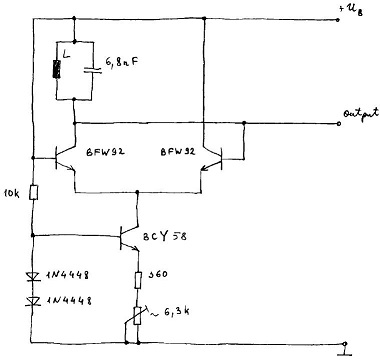 +UB
L
6,8nF
Output
BFW92
BFW92
10k
BCY58
1N4448
560
1N4448
~ 6,3k